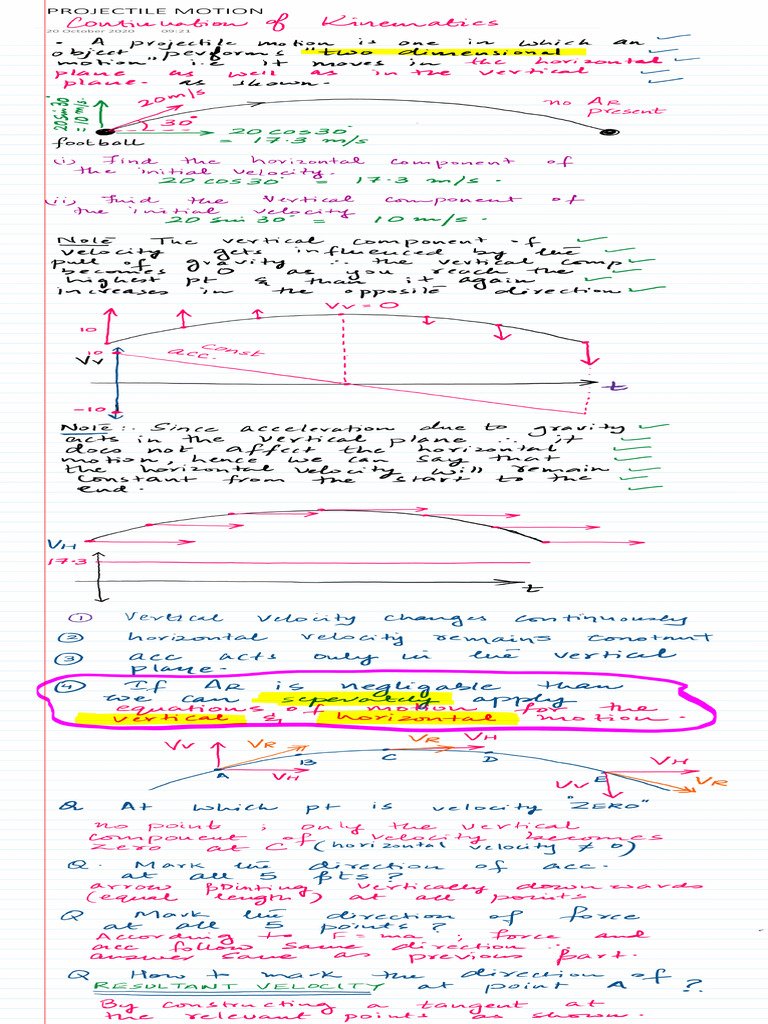 PROJECTILE MOTION
Continuation of Kinematics
20 October 2020 09:21
• A projectile motion is one in which an
object performs "two dimensional
motion" i.e it moves in the horizontal
plane as well as in the vertical
plane. as shown.
20 sin 30° = 10 m/s
20 m/s
30°
no AR present
20 cos 30°
= 17.3 m/s
football
(i) Find the horizontal component of
the initial velocity.
20 cos 30° = 17.3 m/s.
(ii) Find the vertical component of
the initial velocity
20 sin 30° = 10 m/s.
Note The vertical component of
velocity gets influenced by the
pull of gravity ∴ the vertical comp
becomes 0 as you reach the
highest pt & than it again
increases in the opposite direction
Vv = 0
10
10
Vv
const
acc.
t
-10
Note:- Since acceleration due to gravity
acts in the vertical plane ∴ it
does not affect the horizontal
motion, hence we can say that
the horizontal velocity will remain
constant from the start to the
end.
VH
17.3
t
① Vertical velocity changes continuously
② horizontal velocity remains constant
③ acc acts only in the vertical
plane.
④ If AR is negligable than
we can seperately apply
equations of motion for the
vertical & horizontal motion.
Vv VR VR VH
A B C D E
VH
VH
Vv VR
Q At which pt is velocity "ZERO"
no point ; only the vertical
component of velocity becomes
zero at C (horizontal velocity ≠ 0)
Q. Mark the direction of acc.
at all 5 pts ?
arrow pointing vertically downwards
(equal length) at all points
Q Mark the direction of force
at all 5 points ?
According to F = ma ; force and
acc follow same direction ∴
answer same as previous part.
Q How to mark the direction of
RESULTANT VELOCITY at point A ?
By constructing a tangent at
the relevant points as shown.